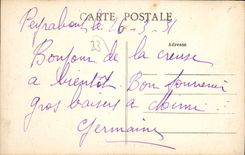 CARTE POSTALE
Peyrabout le 26-3-
Adresse
23
Bonjour de la creuse
a bientôt Bon souvenir
gros baisers a
Germaine